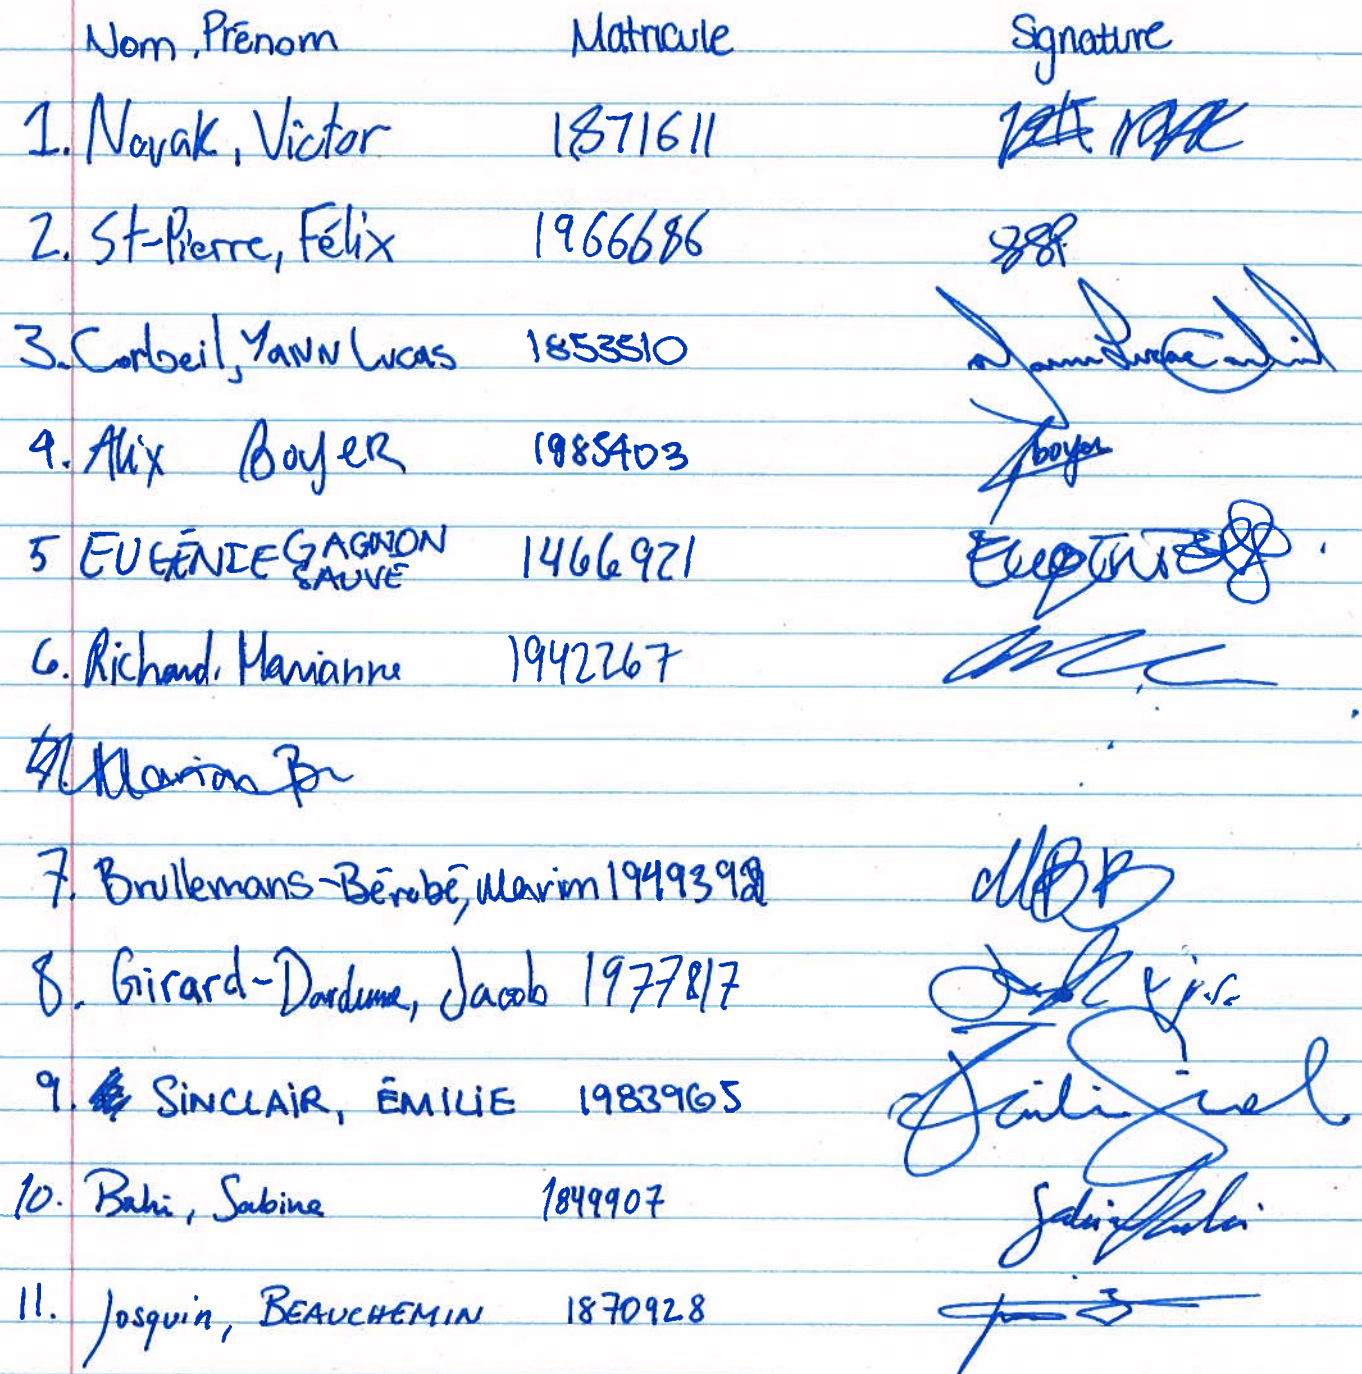 Nom, Prénom Matricule Signature
1. Novak, Victor 1871611
2. St-Pierre, Félix 1966686
3. Corbeil, Yann Lucas 1853510
4. Alix Boyer 1985403 boyer
5 EUGÉNIE GAGNON SAUVÉ 1466921
6. Richard, Marianne 1942267
Marion B
7. Brullemans-Bérubé, Marion 194939
8. Girard-Dordune, Jacob 1977817
9. SINCLAIR, ÉMILIE 1983965
10. Bahi, Sabine 1849907
11. Josquin, BEAUCHEMIN 1870928